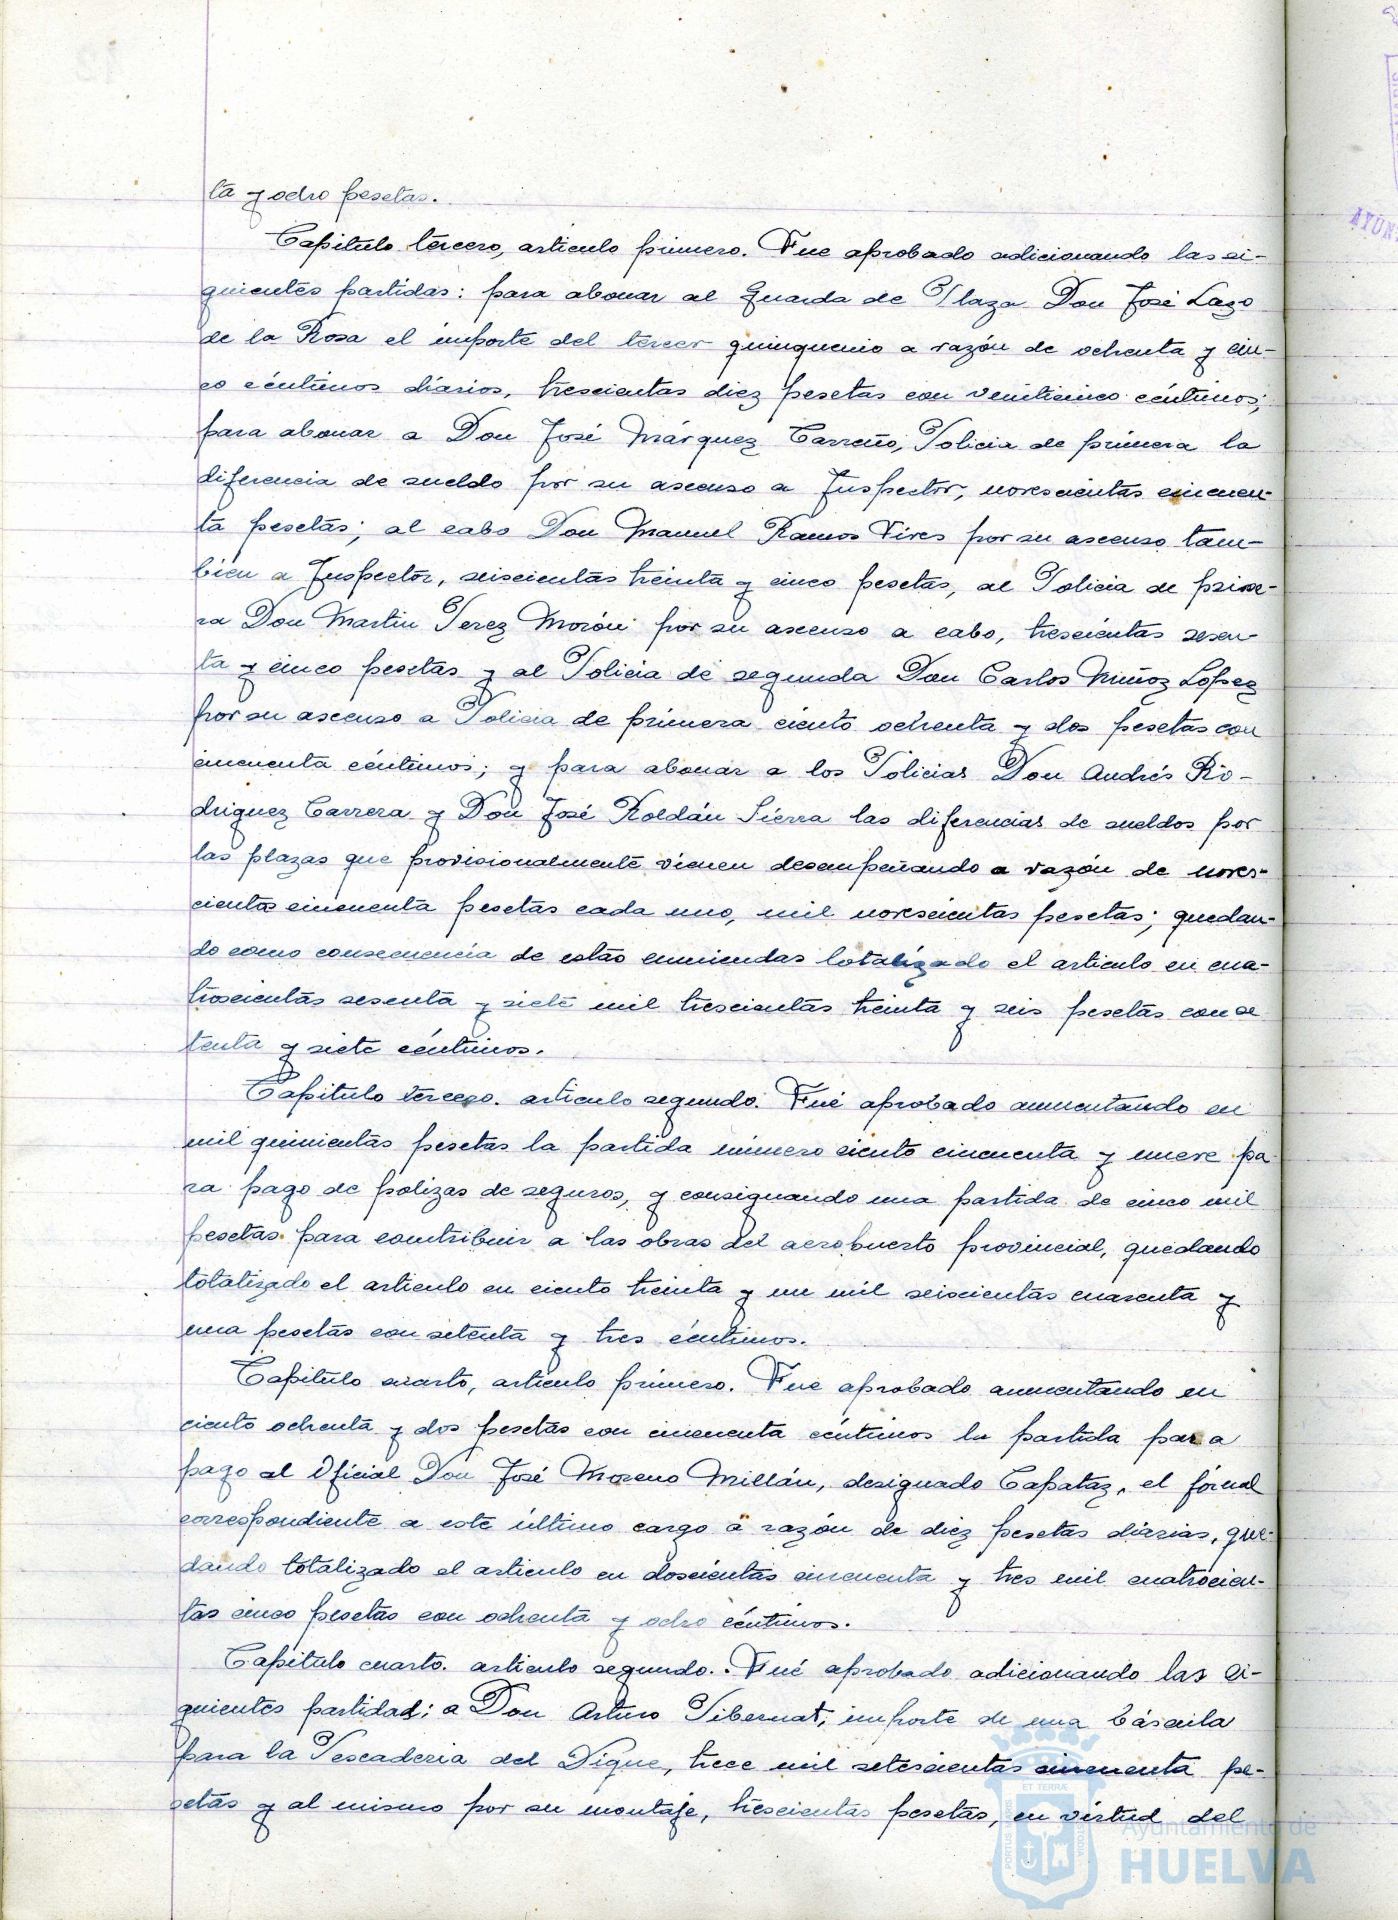 ta y ocho pesetas.
Capitulo tercero, articulo primero. Fue aprobado adicionando las si-
guientes partidas: para abonar al Guarda de Plaza Don José Lazo
de la Rosa el importe del tercer quinquenio a razón de ochenta y cin-
co céntimos diarios, trescientas diez pesetas con veinticinco céntimos;
para abonar a Don José Márquez Carreño, Policia de primera la
diferencia de sueldo por su ascenso a Inspector, novescientas cincuen-
ta pesetas; al cabo Don Manuel Ramos Vives por su ascenso tam-
bien a Inspector, seiscientas treinta y cinco pesetas, al Policia de prime-
ra Don Martin Perez Morón por su ascenso a cabo, trescientas sesen-
ta y cinco pesetas y al Policia de segunda Don Carlos Muñoz López
por su ascenso a Policia de primera ciento ochenta y dos pesetas con
cincuenta céntimos; y para abonar a los Policias Don Andrés Ro-
driguez Carrera y Don José Roldán Sierra las diferencias de sueldos por
las plazas que provisionalmente vienen desempeñando a razón de noves-
cientas cincuenta pesetas cada uno, mil novescientas pesetas; quedan-
do como consecuencia de estas enmiendas totalizado el articulo en cua-
troscientas sesenta y siete mil trescientas treinta y seis pesetas con se
tenta y siete céntimos.
Capitulo tercero. articulo segundo. Fué aprobado aumentando en
mil quinientas pesetas la partida número ciento cincuenta y nueve pa-
ra pago de polizas de seguros, y consignando una partida de cinco mil
pesetas para contribuir a las obras del aeropuerto provincial, quedando
totalizado el articulo en ciento treinta y un mil seiscientas cuarenta y
una pesetas con setenta y tres céntimos.
Capitulo cuarto, articulo primero. Fue aprobado aumentando en
ciento ochenta y dos pesetas con cincuenta céntimos la partida para
pago al Oficial Don José Moreno Millán, designado Capataz, el jórnal
correspondiente a este último cargo a razón de diez pesetas diarias, que-
dando totalizado el articulo en doscientas cincuenta y tres mil cuatrocien-
tas cinco pesetas con ochenta y ocho céntimos.
Capitulo cuarto. articulo segundo. Fué aprobado adicionando las si-
guientes partidas: a Don Arturo Pibernat, importe de una báscula
para la Pescaderia del Dique, trece mil setescientas cincuenta pe-
setas y al mismo por su montaje, trescientas pesetas, en virtud del
ET TERRÆ
PORTUS MARIS
CUSTODIA
Ayuntamiento de
HUELVA